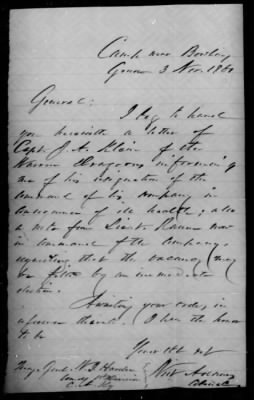 Camp near Bowling
Green 3 Nov. 1861
General:
I beg to hand
you herewith a letter of
Capt. J. A. of the
Warren Dragoons informing
me of his resignation of the
command of his company in
consequence of ill health; also
a note from Lieut. now
in command of the company,
requesting that the vacancy may
be filled by an immediate
election.
Awaiting your orders in
reference thereto, I have the honor
to be
Your obt svt
Maj. Genl. W. J. Hardee